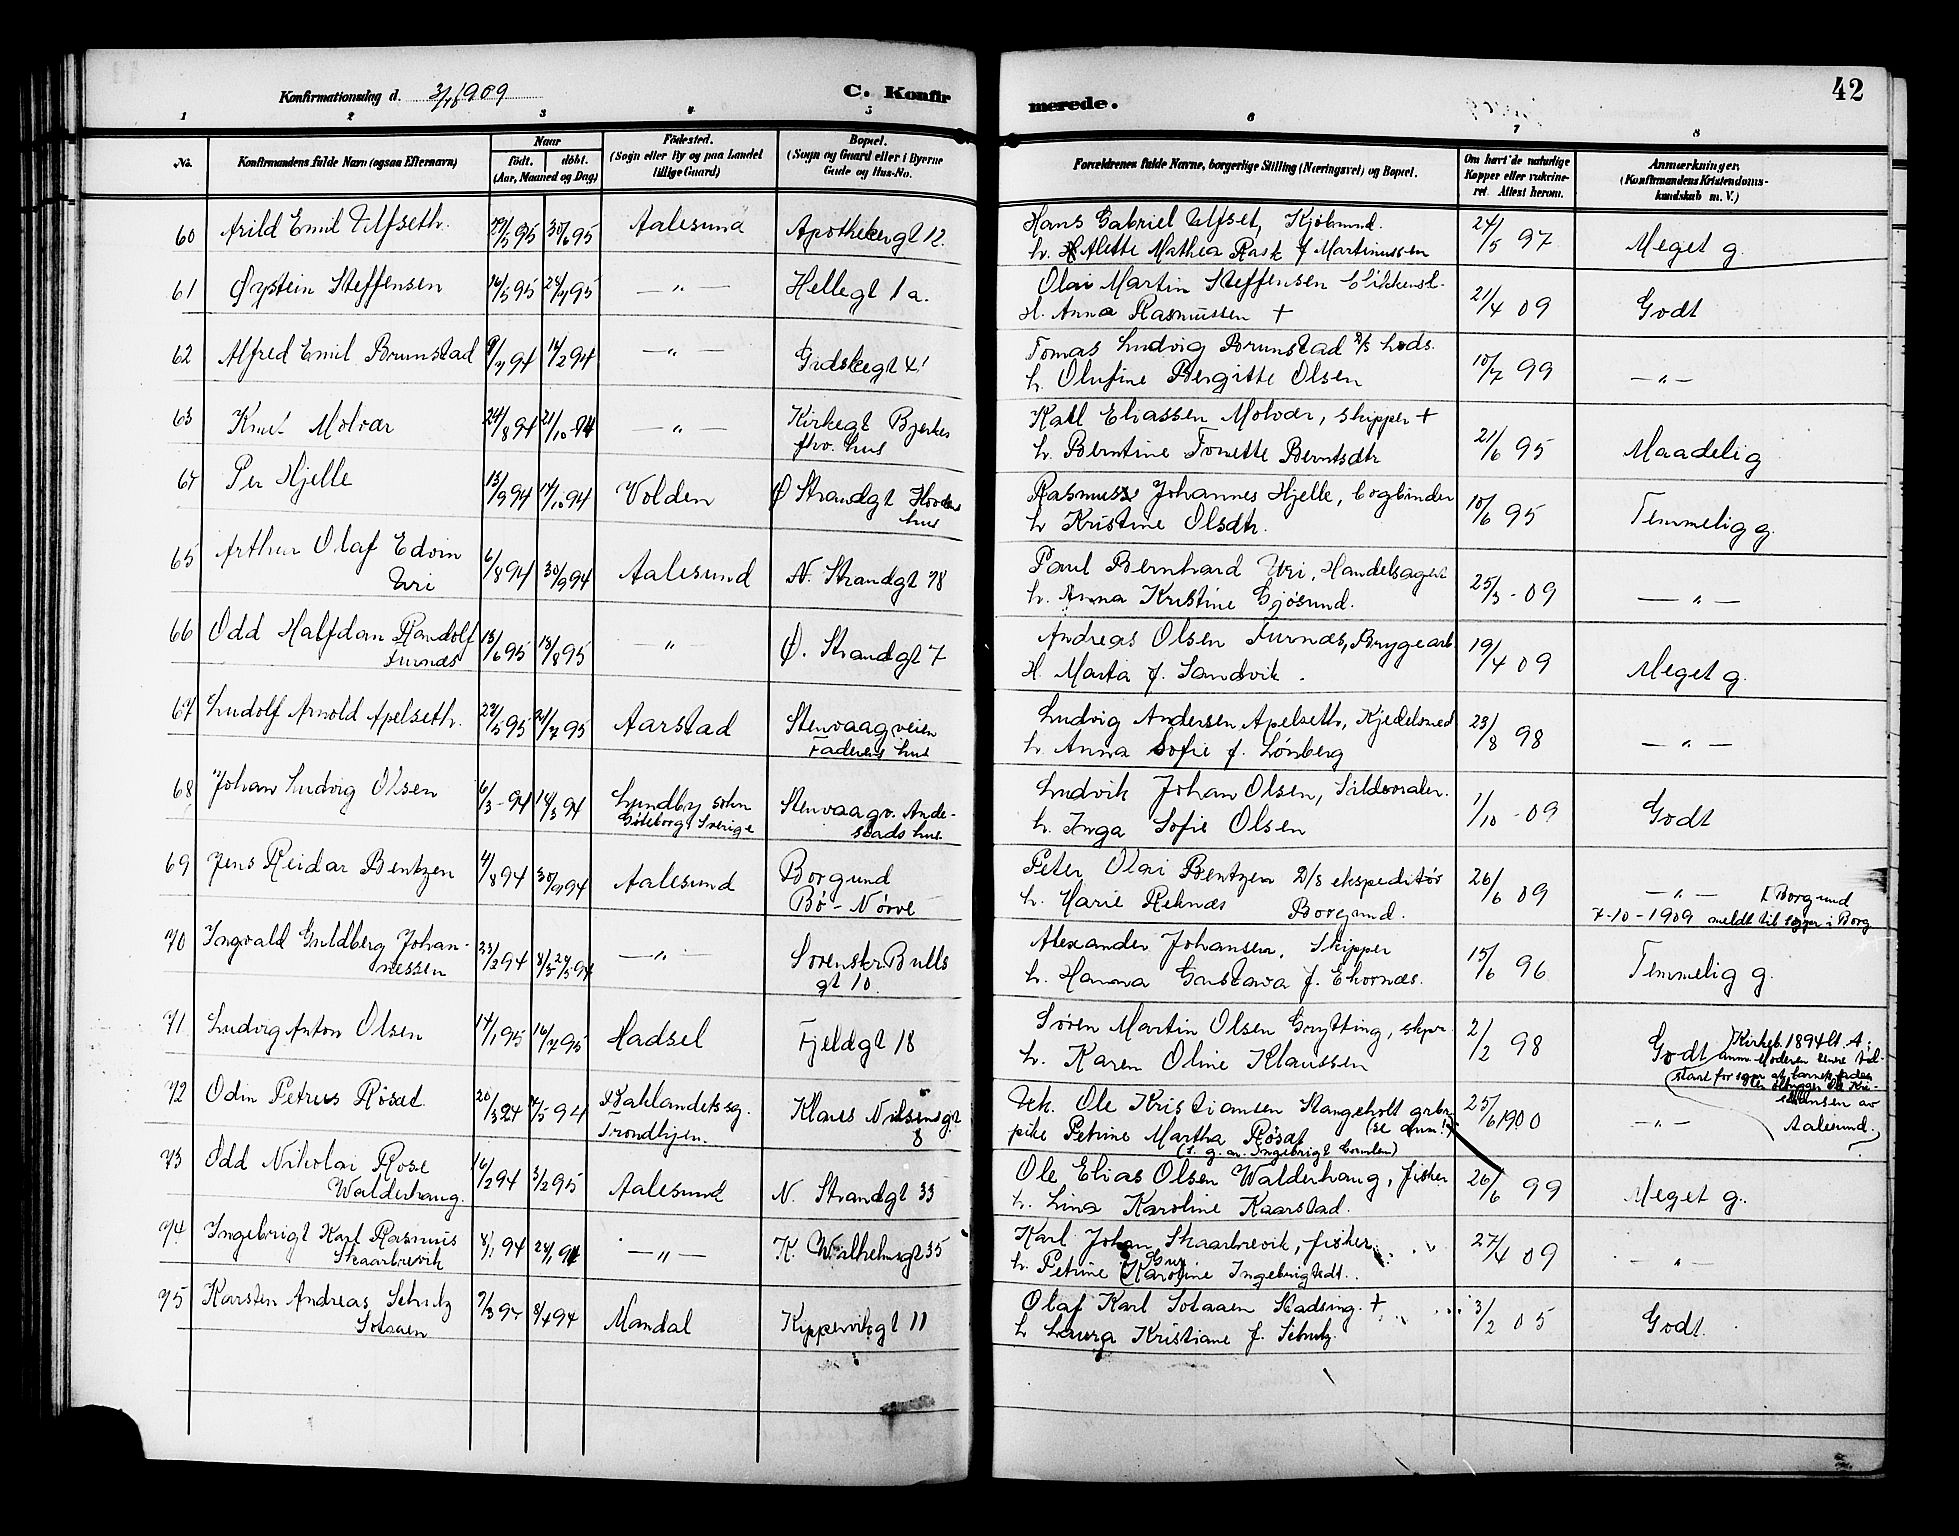 42
Konfirmationsdag d. 3/10 1909
C. Konfirmerede.
1 2 3 4 5 6 7 8
No. Konfirmandens fulde Navn (ogsaa Efternavn) Naar født. døbt. (Aar, Maaned og Dag) Fødested. (Sogn eller By og paa Landet tillige Gaard) Bopæl. (Sogn og Gaard eller i Byerne Gade og Hus-No. Forældrenes fulde Navne, borgerlige Stilling (Næringsvei) og Bopæl. Om havt de naturlige Kopper eller vakcineret. Attest herom. Anmærkninger. (Konfirmandens Kristendomskundskab m. V.)
60 Arild Emil Ulfseth. 29/5 95 30/6 95 Aalesund Apothekergt 12. Hans Gabriel Ulfset, Kjøbmand. 24/5 97 Meget g.
h. Alette Mathea Rask f Martinussen
61 Øystein Steffensen 16/5 95 28/7 95 — " — Hellegt 1 a. Olai Martin Steffensen 21/4 09 Godt
H. Anna Rasmussen +
62 Alfred Emil Brunstad 9/ 94 94 — " — Gidskegt Tomas Ludvig Brunstad D/S lods. 10/7 99 — " —
h. Olufine Bergitte Olsen
63 Knut Molvær 24/8 94 21/10 94 — " — Kirkegt Bjerkes Karl Eliassen Molvær, skipper + 21/6 95 Maadelig
hus h. Berntine Tonette Berntsdtr
64 Per Hjelle 13/9 94 14/10 94 Volden Ø Strandgt Rasmus Johannes Hjelle, bogbinder 10/6 95 Temmelig g.
hus h Kristine Olsdtr.
65 Arthur Olaf Edvin 6/8 94 30/9 94 Aalesund N. Strandgt 78 Paul Bernhard Uri, Handelsagent 25/3 - 09 — " —
Uri h. Anna Kristine Gjøsund.
66 Odd Halfdan Randolf 13/6 95 18/8 95 — " — Ø. Strandgt 7 Andreas Olsen Furnæs, Brygearb 19/4 09 Meget g.
Furnæs H. Marta f. Sandvik.
67 Ludolf Arnold Apelseth. 28/5 95 95 Aarstad Stenvaagveien Ludvig Andersen Apelseth, Kjedelsmed 23/8 98 — " —
Faderens hus h. Anna Sofie f. Lønberg
68 Johan Ludvig Olsen 6/3 - 94 14/3 94 Lundby sokn Stenvaagv. Ande- Ludvik Johan Olsen, Sildevraker. 1/10 - 09 Godt
Göteborg Sverige stads hus. h. Inga Sofie Olsen
69 Jens Reidar Bentzen 4/8 94 30/9 94 Aalesund Borgund Peter Olai Bentzen D/S ekspeditør 26/6 09 — " — [ Borgund
Bø - Nørve h. Marie Reknæs Borgund. 7-10-1909 meldt til sogepr i Borg
70 Ingvald Guldberg Johan- 23/2 94 8/5 27/5 94 — " — Sorenskr Bulls Alexander Johansen, Skipper 15/6 96 Temmelig g.
nessen gt 10. h. Hanna Gustava f. Ekornæs.
71 Ludvig Anton Olsen 14/1 95 16/7 95 Hadsel Fjeldgt 18 Søren Martin Olsen Grytting, skpr 2/2 98 Godt
h. Karen Oline Klaussen
Kirkeb. 1894 lt. A;
72 Odin Petrus Røsæt 20/3 94 94 Bakklandets sg. Klaus Nilsensgt Uek. Ole Kristiansen Stangeholt grbr. 25/6 1900 — " —
Trondhjem. 8 pike Petrine Martha Røsæt (se anm!)
Aalesund.
73 Odd Nikolai Rose 16/ 94 3/2 95 Aalesund N. Strandgt 33 Ole Elias Olsen Walderhaug, fisker 26/6 99 Meget g.
Walderhaug. h. Lina Karoline Kaarstad.
74 Ingebrigt Karl Rasmus 8/1 94 28/1 94 — " — K. Wilhelmsgt 35 Karl Johan Skaarbrevik, fisker. 27/4 09 — " —
Skaarbrevik h. Petrine (Karoline Ingebrigtsdt.
75 Karsten Andreas Schulz 94 8/4 94 Mandal Kippervikgt 11 Olaf Karl Solaaen + 3/2 05 Godt.
Solaaen h Laura Kristiane f. Schulz.